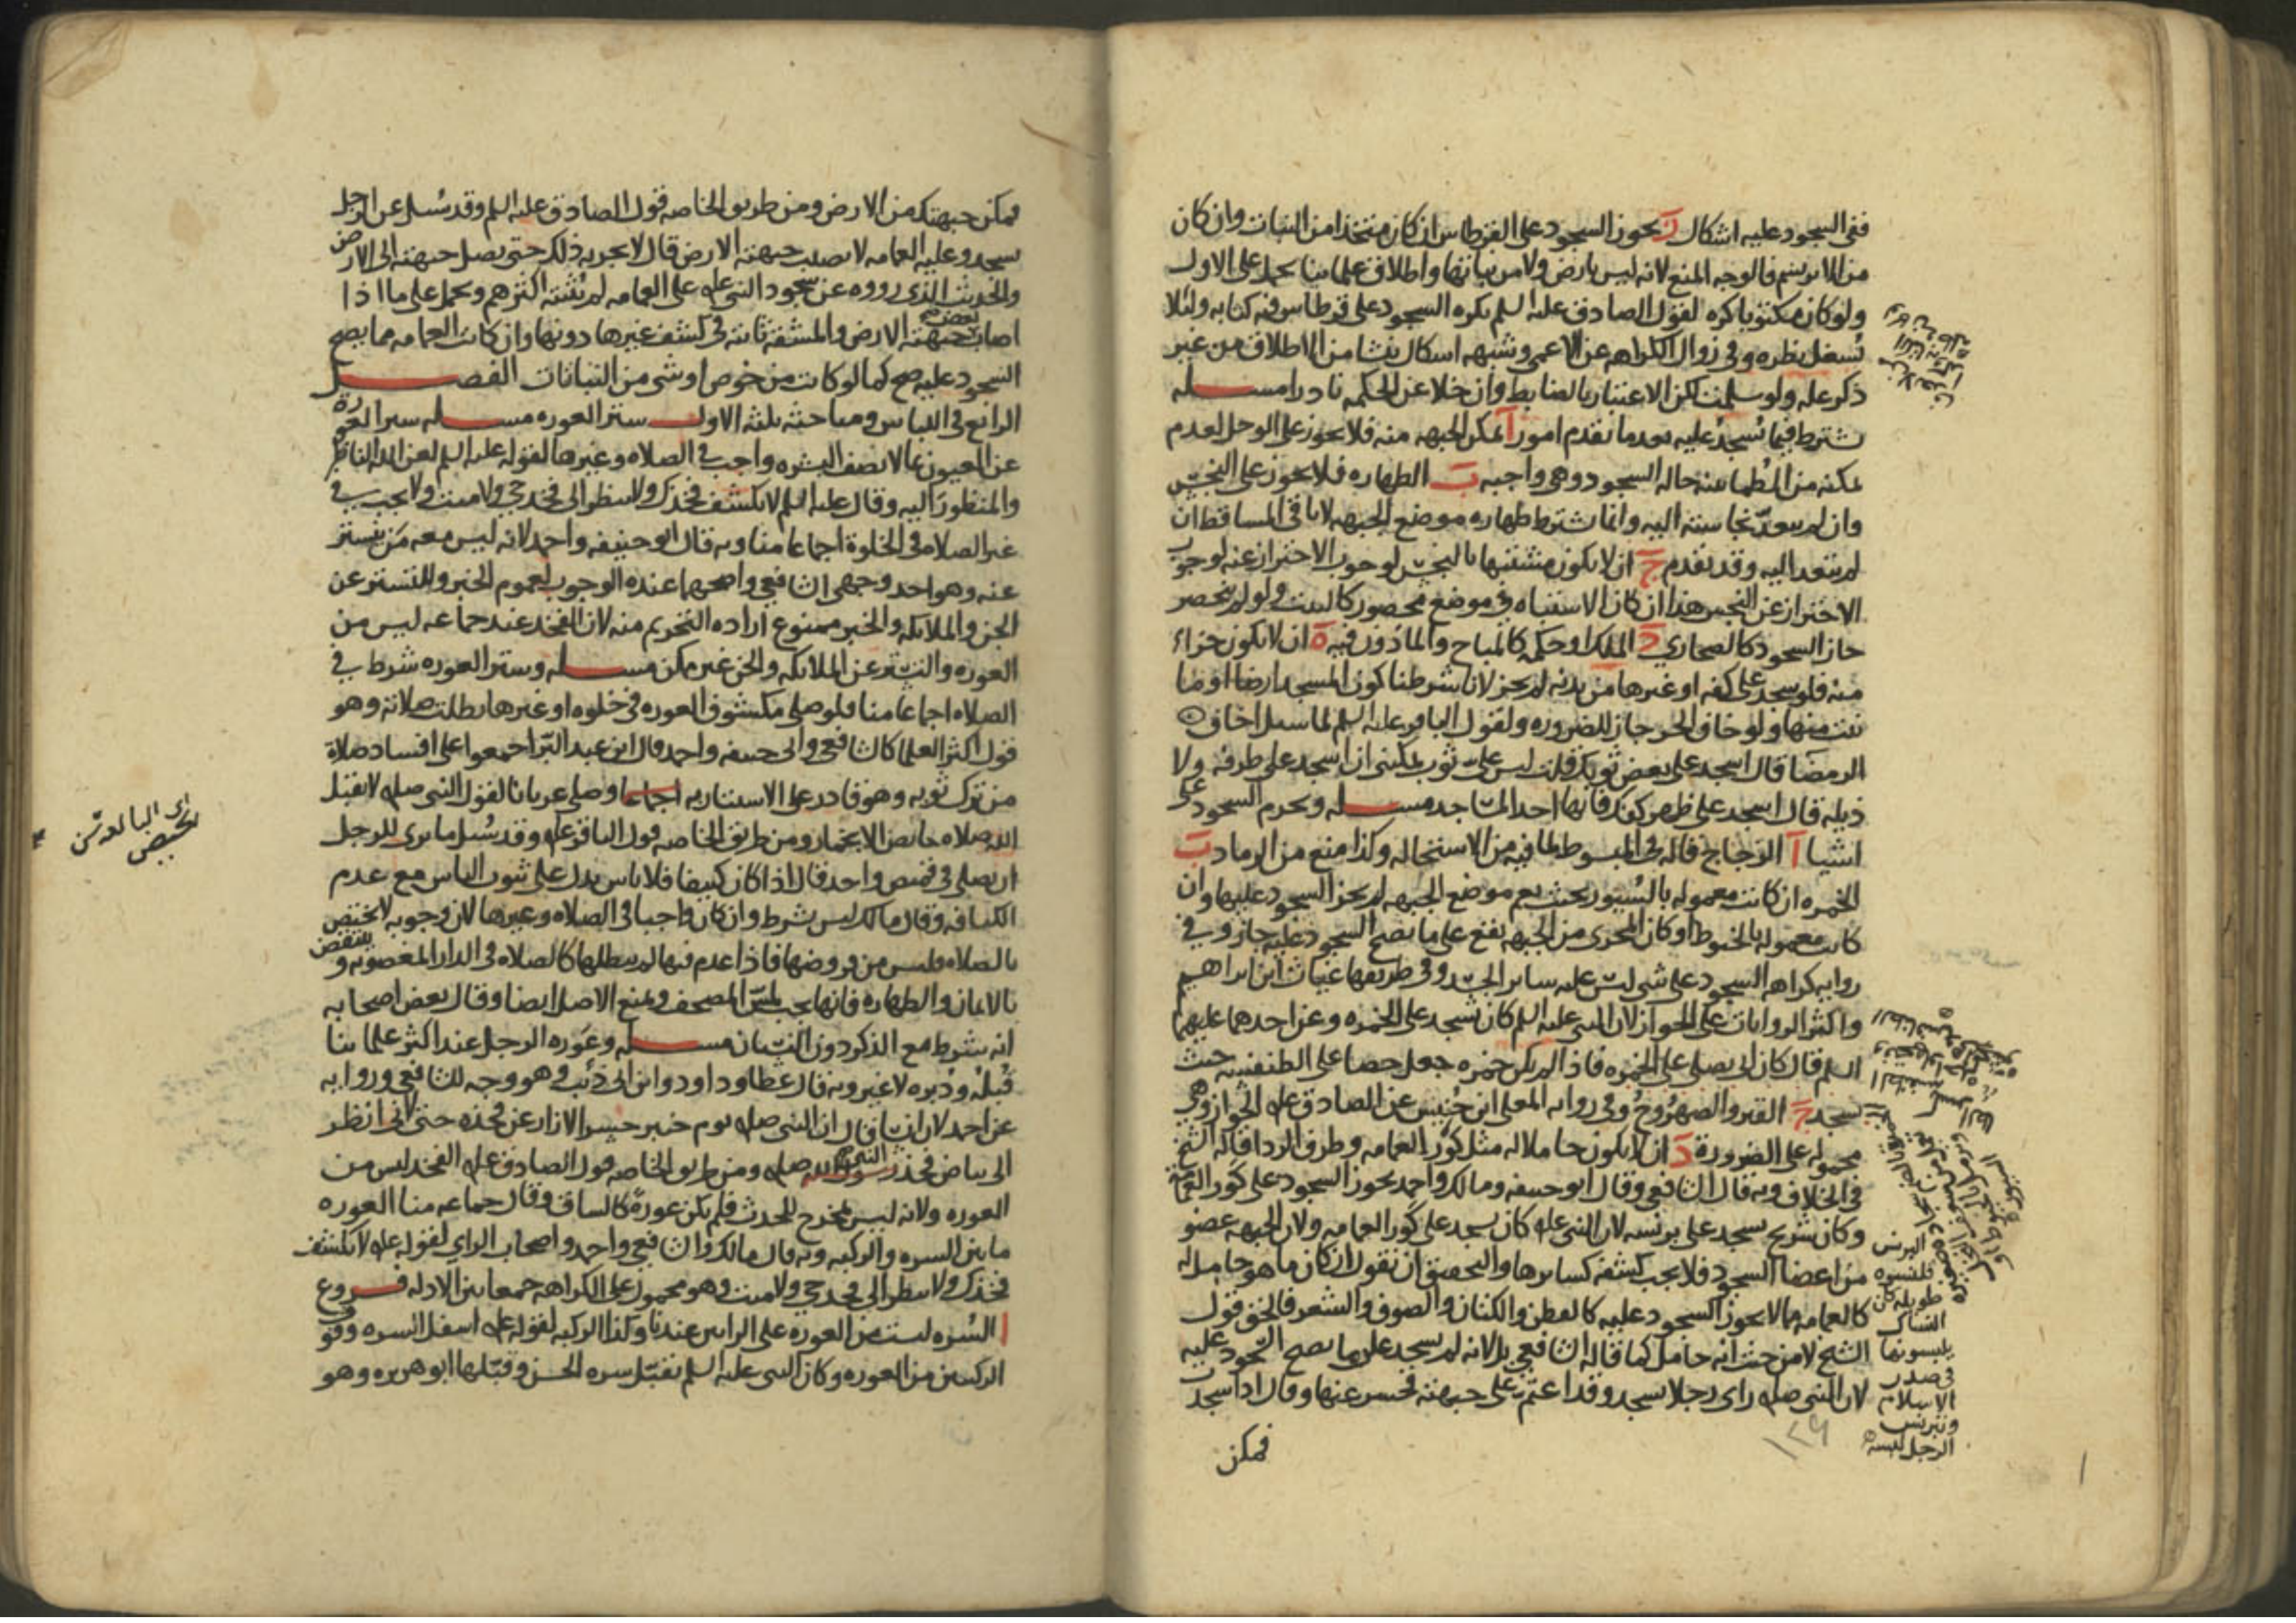 ففي السجود عليه اشكال ز يجوز السجود على القرطاس ان كان متخذا من النبات وان كان
من الابريسم فالوجه المنع لانه ليس بارض ولا من نباتها واطلاق علمائنا يحمل على الاول
ولو كان مكتوبا كره لقول الصادق عليه السلم يكره السجود على قرطاس فيه كتابه ولئلا
يشغل نظره وفي زوال الكراهه عن الاعمى وشبهه اشكال ينشا من الاطلاق من غير
ذكر عله ولو سلمت لكن الاعتبار بالضابط وان خلا عن الحكمه نادرا مسله
يشترط فيما يسجد عليه بعد ما تقدم امور ا تمكن الجبهه منه فلا يجوز على الوحل لعدم
تمكنه من الطمانينه حاله السجود وهي واجبه ب الطهاره فلا يجوز على النجس
وان لم يتعد نجاسته اليه وانما يشترط طهاره موضع الجبهه لا باقي المساقط ان
لم يتعد اليه وقد تقدم ج ان لا يكون مشتبها بالنجس لوجوب الاحتراز عنه لوجوب
الاحتراز عن النجس هذا ان كان الاشتباه في موضع محصور كالبيت ولو لم ينحصر
جاز السجود كالصحاري د الملك او حكمه كالمباح والماذون فيه ه ان لا يكون جزاء
منه فلو سجد على كفه او غيرها من بدنه لم يجز لانا شرطنا كون المسجد ارضا او ما
نبت منها ولو خاف الحر جاز للضروره ولقول الباقر عليه السلم لما سيل اخاف
الرمضا قال اسجد على بعض ثوبك قلت ليس علي ثوب يمكنني ان اسجد على طرفه ولا
ذيله قال اسجد على ظهر كفك فانها احد المساجد مسله ويحرم السجود على
اشيا ا الزجاج قاله في المبسوط لما فيه من الاستحاله وكذا منع من الرماد ب
الخمره ان كانت معموله بالسيور بحيث يعم موضع الجبهه لم يجز السجود عليها وان
كانت معموله بالخيوط او كان المجزى من الجبهه يقع على ما يصح السجود عليه جاز وفي
روايه كراهه السجود على شي ليس عليه ساير الجسد وفي طريقها غياث ابن ابراهيم
واكثر الروايات على الجواز لان النبي عليه السلم كان يسجد على الخمره وعن احدهما عليهما
السلم قال كان ابي يصلي على الخمره فاذا لم يكن خمره جعل حصا على الطنفسه حيث
يسجد ج القير والصهروج وفي روايه المعلى ابن خنيس عن الصادق عله الجواز وهي
محموله على الضرورة د ان لا يكون حاملا له مثل كور العمامه وطرف الردا قاله الشيخ
في الخلاف وبه قال الشافعي وقال ابو حنيفه ومالك واحمد يجوز السجود على كور العمامة
وكان شريح يسجد على برنسه لان النبي عله كان يسجد على كور العمامه ولان الجبهه عضو
من اعضا السجود فلا يجب كشفه كسايرها والتحقيق ان نقول ان كان ما هو حامل له
كالعمامه مما لا يجوز السجود عليه كالقطن والكتان والصوف والشعر فالحق قول
الشيخ لا من حيث انه حامل كما قاله الشافعي بل لانه لم يسجد على ما يصح السجود عليه
لان النبي صله راى رجلا يسجد وقد اعتم على جبهته فحسر عنها وقال اذا سجدت
فمكن
البرنس
قلنسوه
طويله كان
النساك
يلبسونها
في صدر
الاسلام
وتبرنس
الرجل لبسه
۱۲۹
فمكن جبهتك من الارض ومن طريق الخاصه قول الصادق عليه السلم وقد سيل عن الرجل
يسجد وعليه العمامه لا يصيب جبهته الارض قال لا يجزيه ذلك حتى يصل جبهته الى الارض
والحديث الذي رووه عن سجود النبي عله على العمامه لم يثبته اكثرهم ويحمل على ما اذا
اصاب بعض جبهته الارض والمشقه ثابته في كشف غيرها دونها وان كانت العمامه مما يصح
السجود عليه صح كما لو كانت من خوص او شي من النباتات الفصل
الرابع في اللباس ومباحثه ثلثه الاول ستر العوره مسله ستر العورة
عن العيون بما لا يصف البشره واجب في الصلاه وغيرها لقوله عليه السلم لعن الله الناظر
والمنظور اليه وقال عليه السلم لا تكشف فخذك ولا تنظر الى فخذ حي ولا ميت ولا يجب في
غير الصلاه في الخلوة اجماعا منا وبه قال ابو حنيفه واحمد لانه ليس معه من يستتر
عنه وهو احد وجهي الشافعي واصحهما عنده الوجوب لعموم الخبر وللتستر عن
الجن والملائكه والخبر ممنوع اراده التحريم منه لان الفخذ عند جماعه ليس من
العوره والتستر عن الملائكه والجن غير ممكن مسله وستر العوره شرط في
الصلاه اجماعا منا فلو صلى مكشوف العوره في خلوه او غيرها بطلت صلاته وهو
قول اكثر العلما كالشافعي وابي حنيفه واحمد وقال ابن عبد البر اجمعوا على افساد صلاة
من ترك ثوبه وهو قادر على الاستتار به اجماعا وصلى عريانا لقول النبي صله لا يقبل
الله صلاه حائض الا بخمار ومن طريق الخاصه قول الباقر عله وقد سيل ما يرى للرجل
ان يصلي في قميص واحد فقال اذا كان كثيفا فلا باس يدل على ثبوت الباس مع عدم
الكثافه وقال مالك ليس شرط وان كان واجبا في الصلاه وغيرها لان وجوبه لا يختص
بالصلاه فليس من فروضها فاذا عدم فيها لم يبطلها كالصلاه في الدار المغصوبه وينتقض
بالايمان والطهاره فانها يجب لمس المصحف ويمنع الاصل ايضا وقال بعض اصحابه
انه شرط مع الذكر دون النسيان مسله وعوره الرجل عند اكثر علمائنا
قبله ودبره لا غير وبه قال عطا وداود وابن ابي ذئب وهو وجه للشافعي وروايه
عن احمد لان انسا قال ان النبي صله يوم خيبر حسر الازار عن فخذه حتى اني انظر
الى بياض فخذ النبي صله ومن طريق الخاصه قول الصادق عله الفخذ ليس من
العوره ولانه ليس بمخرج للحدث فلم يكن عورة كالساق وقال جماعه منا العوره
ما بين السره والركبه وبه قال مالك والشافعي واحمد واصحاب الراي لقوله عله لا تكشف
فخذك ولا تنظر الى فخذ حي ولا ميت وهو محمول على الكراهه جمعا بين الادله فروع
ا السره ليست من العوره على الراي عندنا وكذا الركبه لقوله عله اسفل السره وفوق
الركبتين من العوره وكان النبي عليه السلم يقبل سره الحسن وقبلها ابو هريره وهو